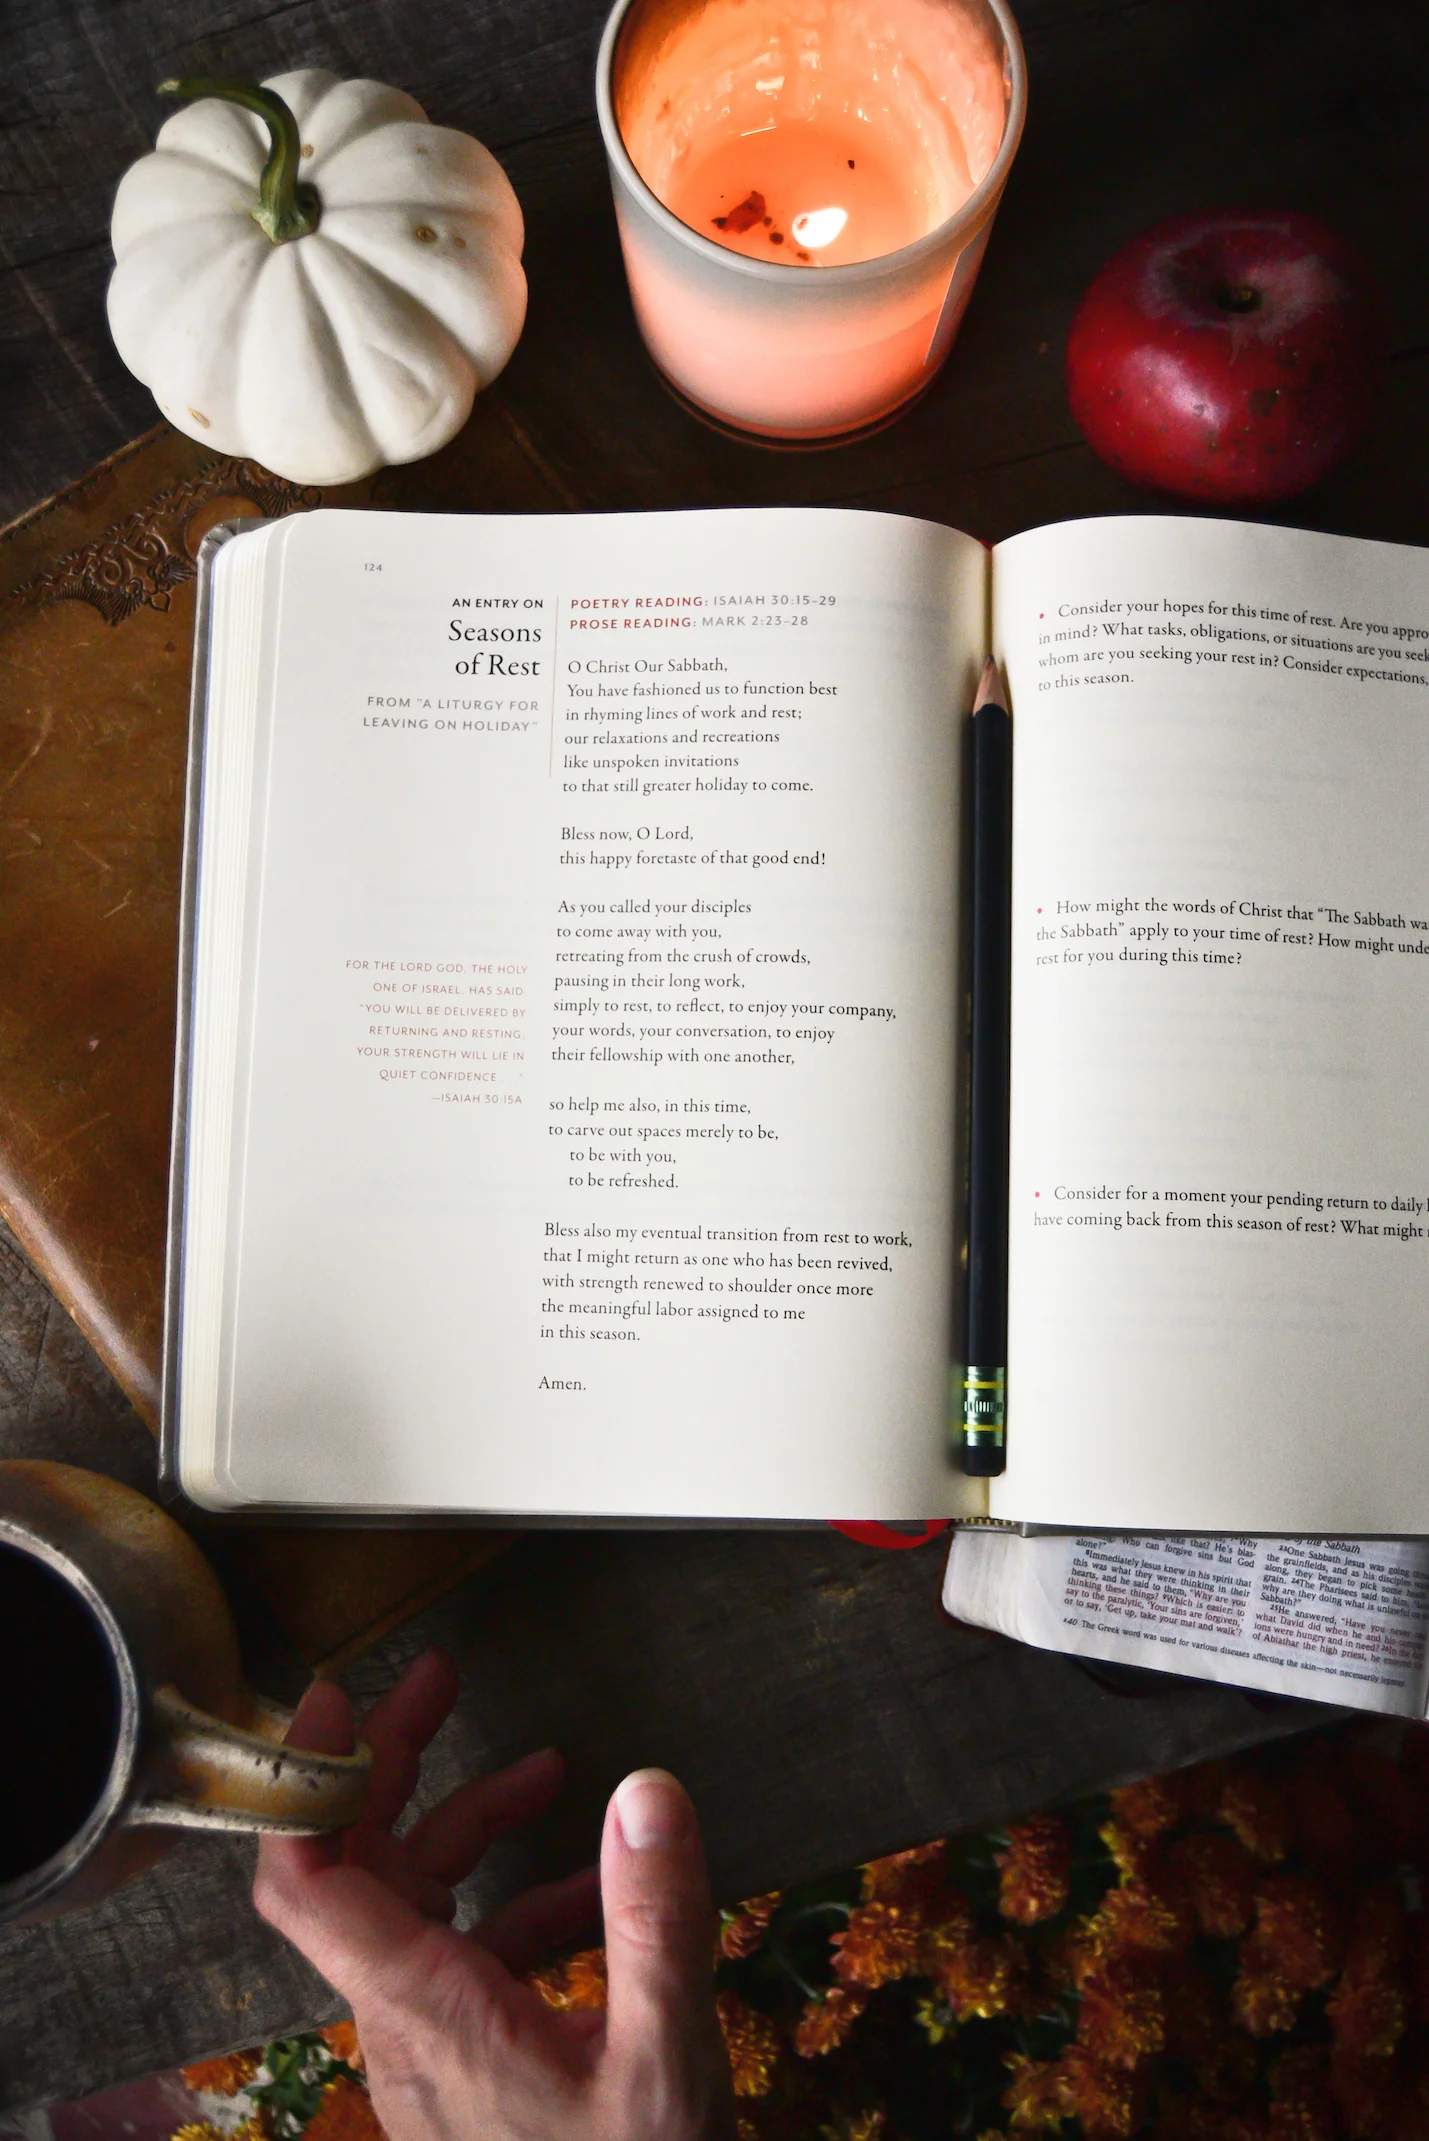 124
AN ENTRY ON
Seasons
of Rest
FROM "A LITURGY FOR
LEAVING ON HOLIDAY"
POETRY READING: ISAIAH 30:15–29
PROSE READING: MARK 2:23–28
O Christ Our Sabbath,
You have fashioned us to function best
in rhyming lines of work and rest;
our relaxations and recreations
like unspoken invitations
to that still greater holiday to come.
Bless now, O Lord,
this happy foretaste of that good end!
As you called your disciples
to come away with you,
retreating from the crush of crowds,
pausing in their long work,
simply to rest, to reflect, to enjoy your company,
your words, your conversation, to enjoy
their fellowship with one another,
so help me also, in this time,
to carve out spaces merely to be,
to be with you,
to be refreshed.
Bless also my eventual transition from rest to work,
that I might return as one who has been revived,
with strength renewed to shoulder once more
the meaningful labor assigned to me
in this season.
Amen.
FOR THE LORD GOD, THE HOLY
ONE OF ISRAEL, HAS SAID:
"YOU WILL BE DELIVERED BY
RETURNING AND RESTING;
YOUR STRENGTH WILL LIE IN
QUIET CONFIDENCE . . . "
—ISAIAH 30:15A
• Consider your hopes for this time of rest. Are you
in mind? What tasks, obligations, or situations are you
whom are you seeking your rest in? Consider expectations,
to this season.
• How might the words of Christ that “The Sabbath
the Sabbath” apply to your time of rest? How might
rest for you during this time?
• Consider for a moment your pending return to daily
have coming back from this season of rest? What might
like that? He's blas-
Who can forgive sins but God
alone?"
8Immediately Jesus knew in his spirit that
this was what they were thinking in their
hearts, and he said to them, "Why are you
thinking these things? 9Which is easier: to
say to the paralytic, 'Your sins are forgiven,'
or to say, 'Get up, take your mat and walk'?
the Sabbath
23One Sabbath Jesus was going
the grainfields, and as his disciples
along, they began to pick some
grain. 24The Pharisees said to him,
why are they doing what is unlawful on
Sabbath?"
25He answered, "Have you never
what David did when he and his
ions were hungry and in need? 26In the
of Abiathar the high priest, he entered
a40 The Greek word was used for various diseases affecting the skin—not necessarily leprosy.